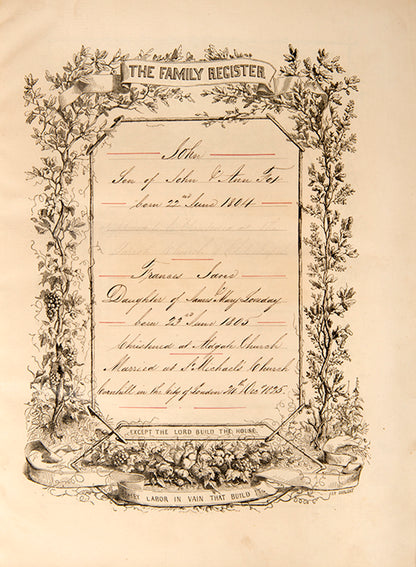 THE FAMILY REGISTER
John
Son of John & Ann Fox
born 22nd June 1804
Frances Jane
Daughter of James & Mary
born 23rd June 1805
Christened at Aldgate Church
Married at St Michaels Church
Cornhill in the City of London Dec 1825
EXCEPT THE LORD BUILD THE HOUSE
THEY LABOR IN VAIN THAT BUILD IT